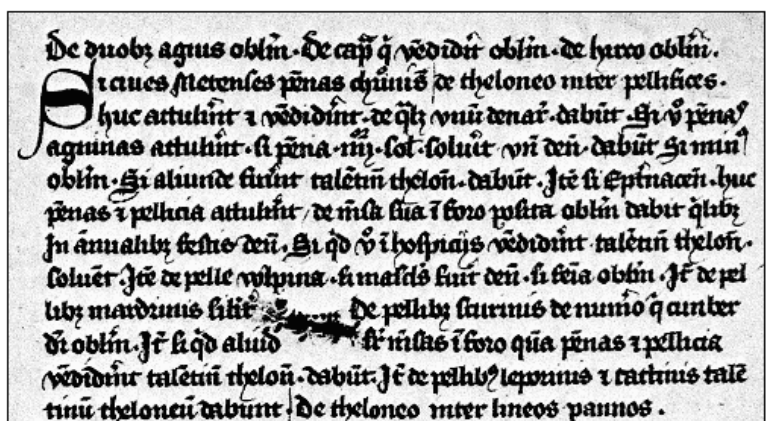 De duobz agnis oblm. De cap̄ q̄ vēdidit oblm. de hirco oblm.
Si ciues Metenses pēnas de theloneo inter pellifices.
huc attulint ⁊ vēdidint. de qͥlz vnū denar. dabūt. Si v̊ pēnaꝰ
agninas attulint. si pēna. sol. soluit vn̄ den̄. dabūt Si minꝰ
oblm. Si aliunde fuint talētin̄ thelon̄. dabūt. Itē si huc
pēnas ⁊ pellicia attulint, de mīsa sua ī foro posita oblm dabit qͥlibz
In ānualibz festis den̄. Si qͥd v̊ ī hospicijs vēdidint talētin̄ thelon̄.
soluēt. Itē de pelle vulpina. si mascls fuit den̄. si feīa oblm. It̄ de pel
libz mardrinis silit̄ De pellibz scurinis de numo q̄
oblm. It̄ si qͥd aliud mīsas ī foro pēnas ⁊ pellicia
vēdidint talētin̄ thelon̄. dabūt. It̄ de pellibꝰ leporinis ⁊ cattinis talē
tinū theloneū dabunt. De theloneo inter lineos pannos.